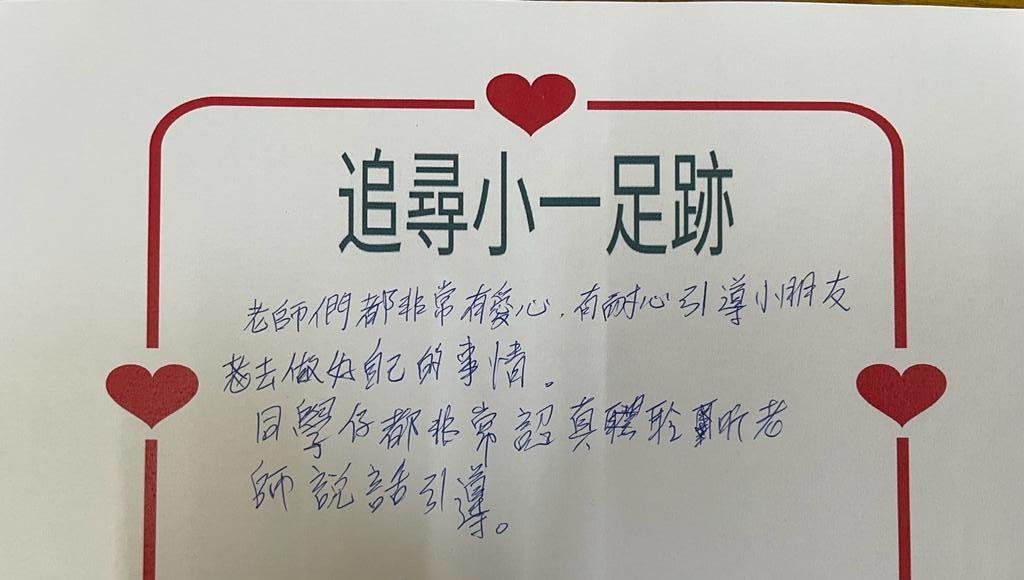 追尋小一足跡
老師們都非常有愛心,有耐心引導小朋友
去做好自己的事情。
同學仔都非常認真聆听老
師說話引導。